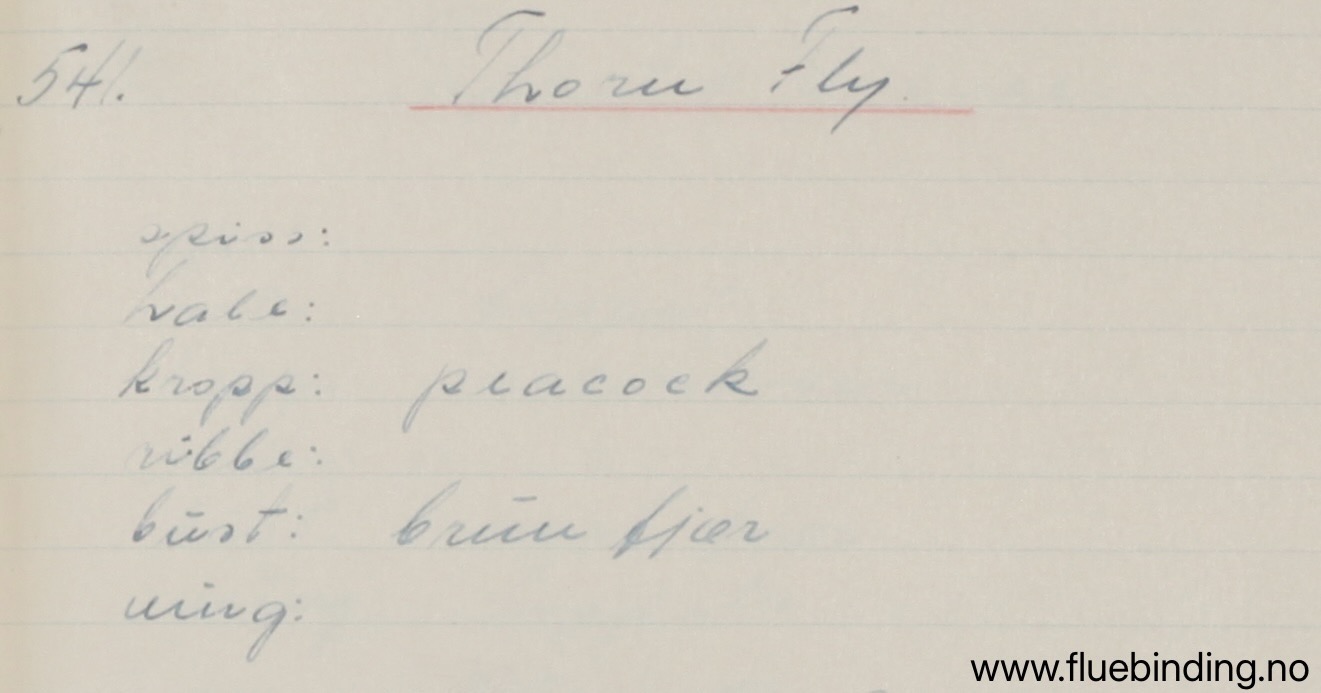 541. Thorn Fly.
spiss:
hale:
kropp: peacock
ribbe:
bust: brun fjær
ving:
www.fluebinding.no